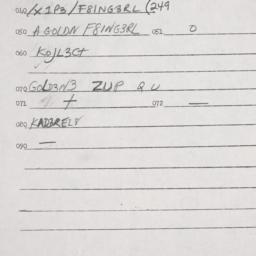 040 /X1P3/F8ING3RL (249
050 A GOLDN F8ING3RL 051 0
060 KOJL3C+
070 GOLD3N3 ZUP Q U
071 + 072 —
080 KAD3REL8
090 —